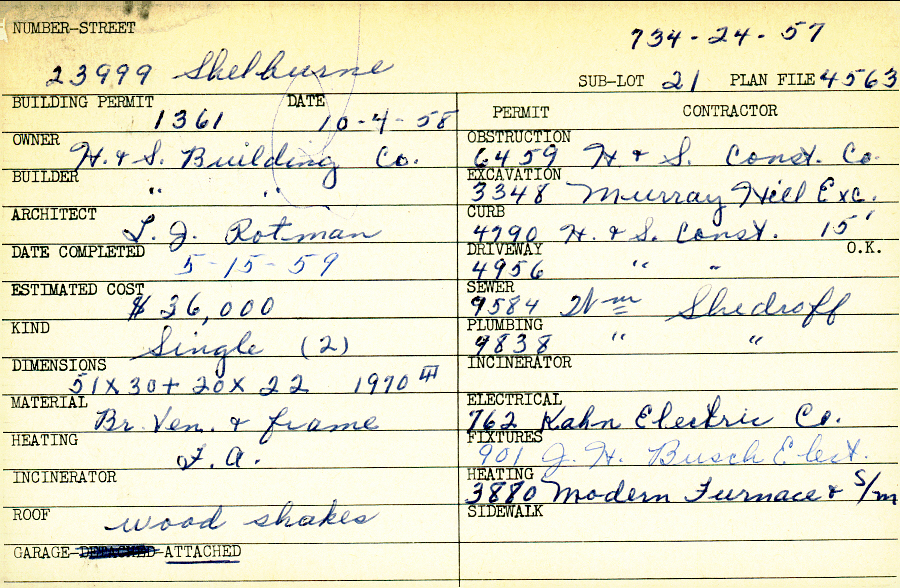 NUMBER-STREET
734-24-57
23999 Shelburne
SUB-LOT 21 PLAN FILE 4563
BUILDING PERMIT DATE
1361 10-4-58
OWNER
H. & S. Building Co.
BUILDER
" "
ARCHITECT
L. J. Rotman
DATE COMPLETED
5-15-59
ESTIMATED COST
$ 36,000
KIND
Single (2)
DIMENSIONS
51 x 30 + 20 x 22 1970 III
MATERIAL
Br. Ven. & frame
HEATING
F. A.
INCINERATOR
ROOF
wood shakes
GARAGE-DETACHED-ATTACHED
PERMIT CONTRACTOR
OBSTRUCTION
6459 H. & S. Const. Co.
EXCAVATION
3348 Murray Hill Exc.
CURB
4790 H. & S. Const. 15'
DRIVEWAY O.K.
4956 " "
SEWER
9584 Wm Shedroff
PLUMBING
9838 " "
INCINERATOR
ELECTRICAL
762 Kahn Electric Co.
FIXTURES
901 J. H. Busch Elect.
HEATING
3880 Modern Furnace & S/m
SIDEWALK